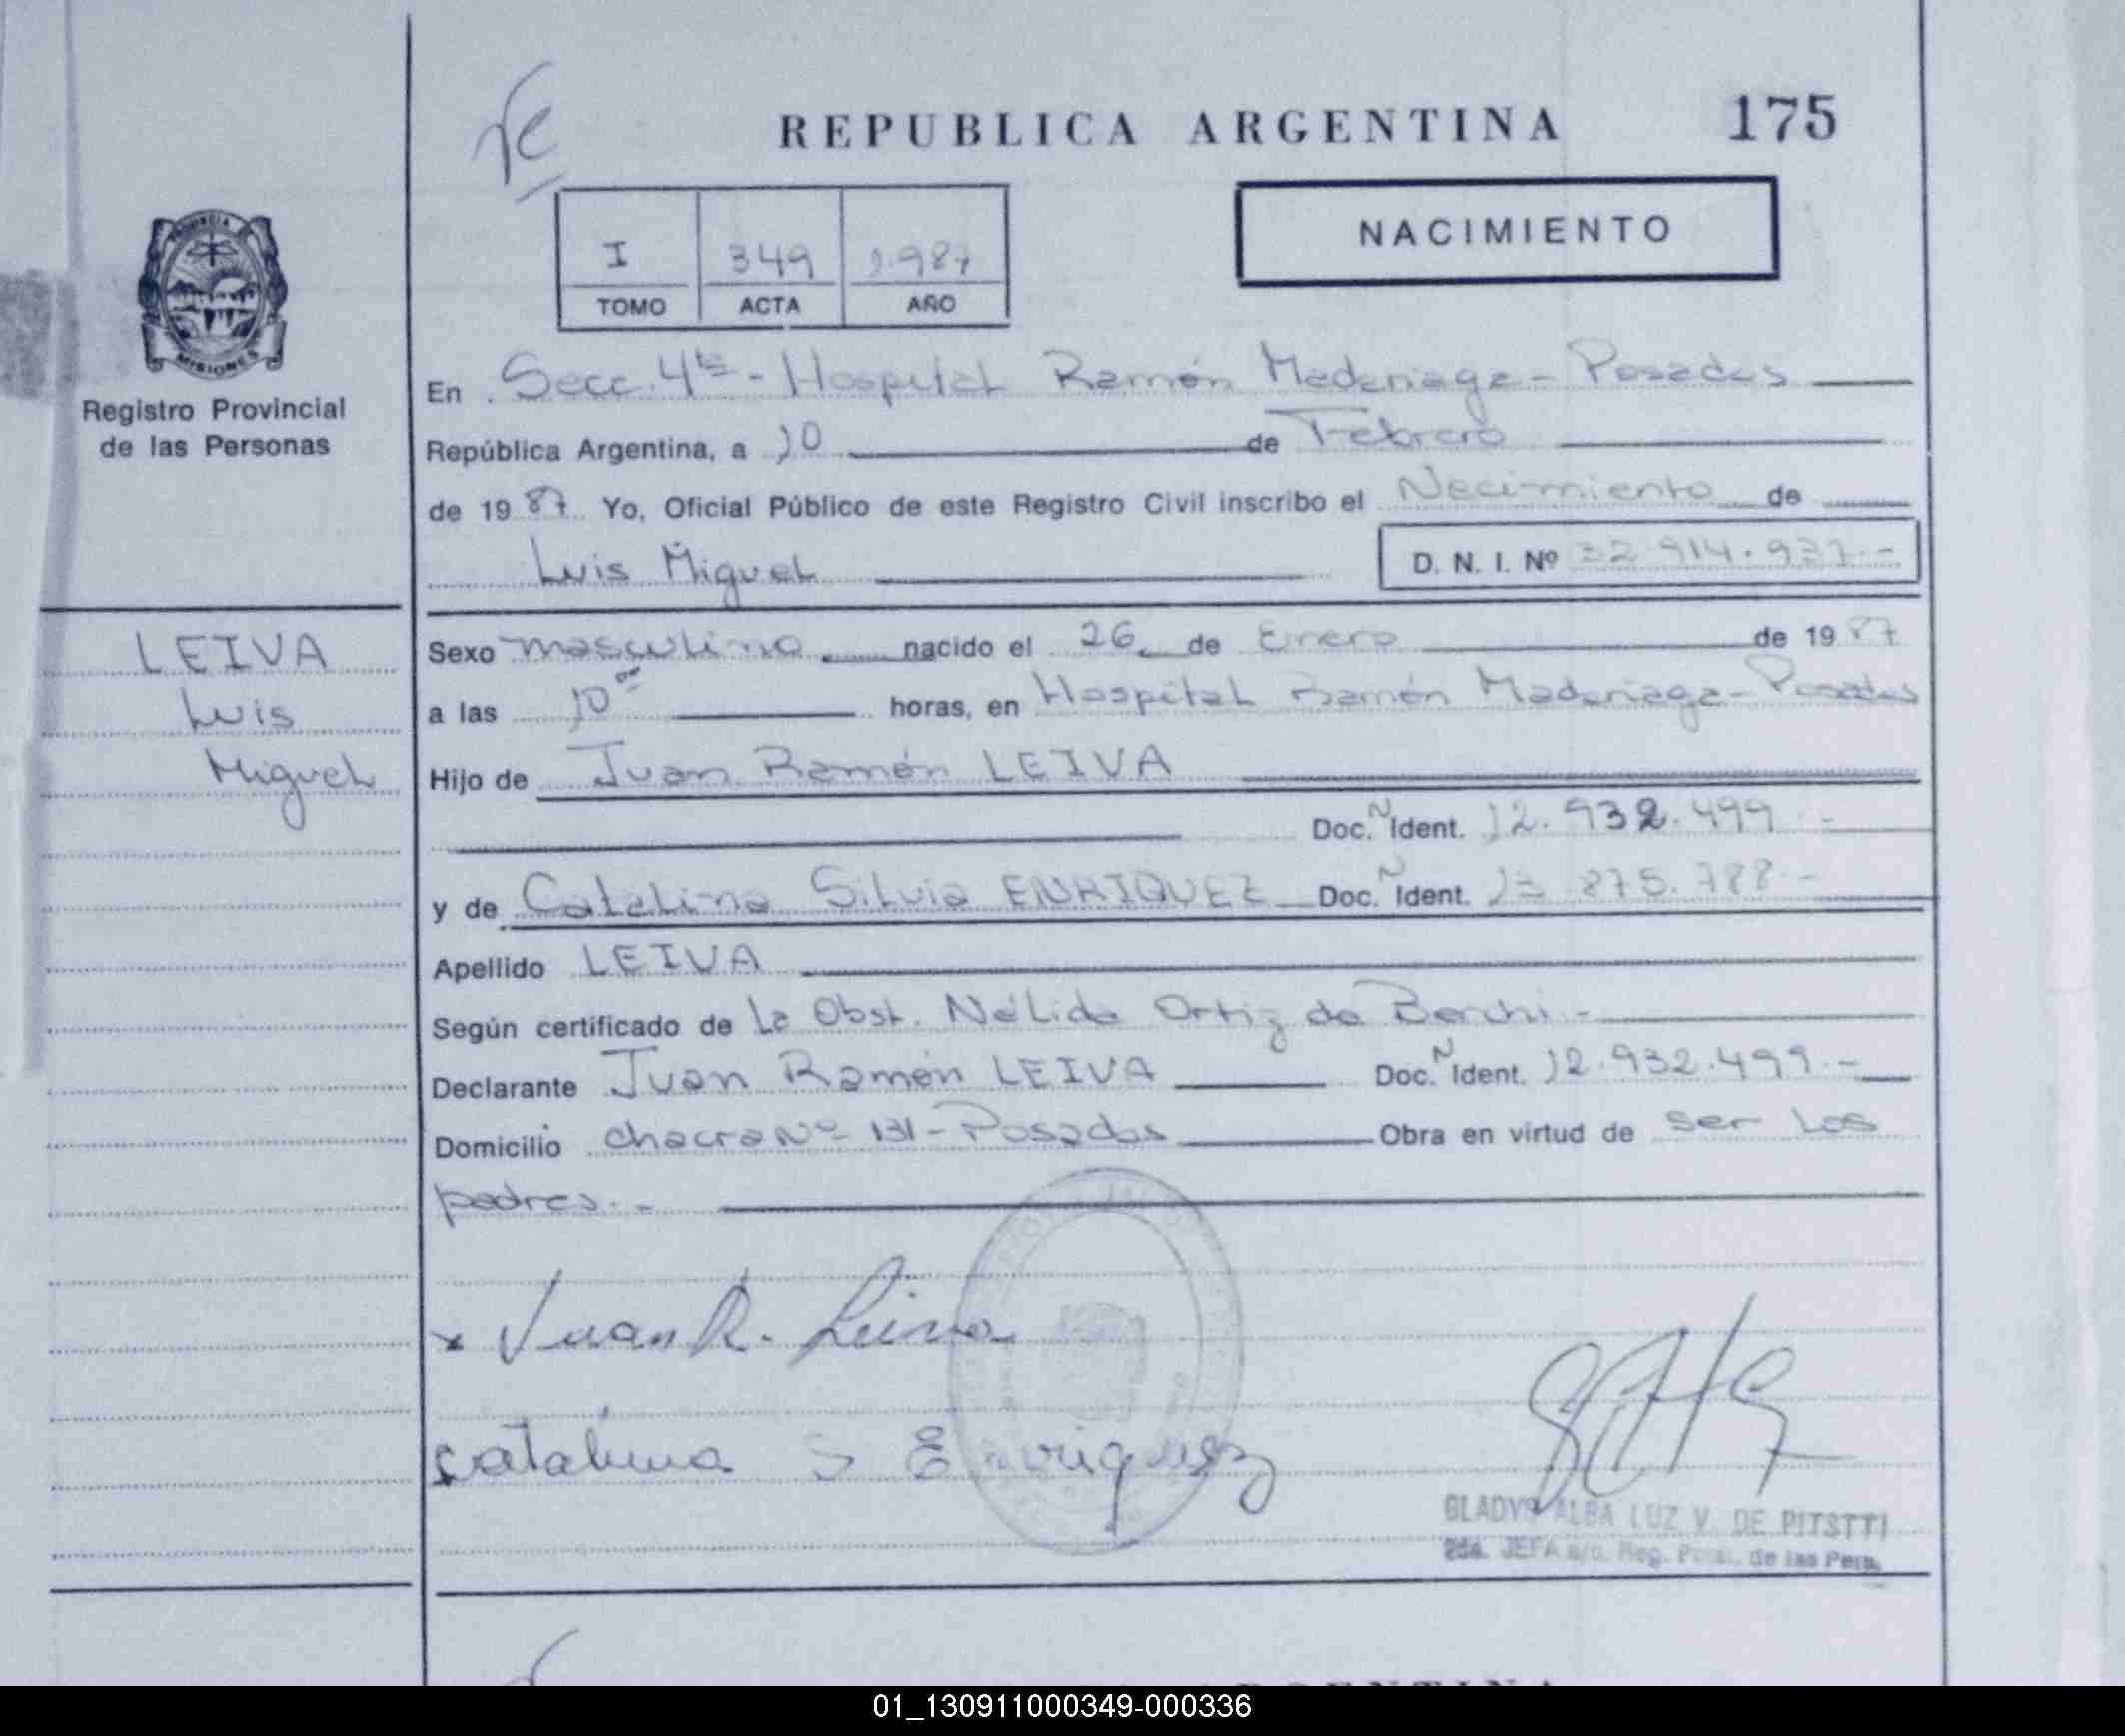 REPUBLICA ARGENTINA 175
NACIMIENTO
I 349 1.987
TOMO ACTA AÑO
PROVINCIA
MISIONES
Registro Provincial
de las Personas
En Secc. 4ta - Hospital Ramón Madariaga - Posadas
República Argentina, a 10 de Febrero
de 1987 Yo, Oficial Público de este Registro Civil inscribo el Nacimiento de
Luis Miguel D. N. I. Nº 32.914.937.-
LEIVA
Luis
Miguel
Sexo masculino nacido el 26 de Enero de 1987
a las 10 horas, en Hospital Ramón Madariaga - Posadas
Hijo de Juan Ramón LEIVA
Doc. N Ident. 12.932.499.-
y de Catalina Silvia ENRIQUEZ Doc. N Ident. 13.875.788.-
Apellido LEIVA
Según certificado de La Obst. Nélida Ortiz de Berchi.-
Declarante Juan Ramón LEIVA Doc. N Ident. 12.932.499.-
Domicilio chacra Nº 131 - Posadas Obra en virtud de ser los
padres.-
x Juan R. Leiva
Catalina S Enriquez
GLADYS ALBA LUZ V. DE PITSTTI
2da. JEFA a/c. Reg. Pcial. de las Pers.
01_130911000349-000336